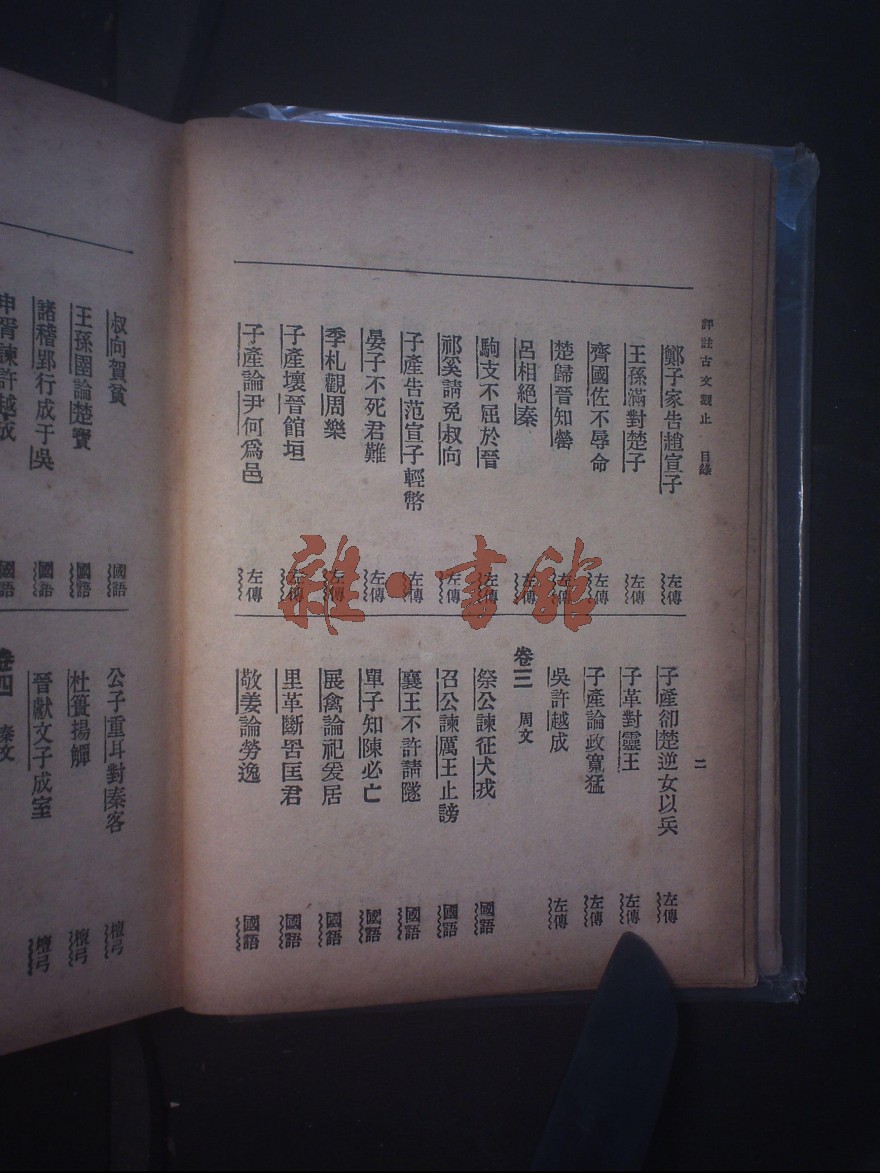 評註古文觀止 目錄
二
鄭子家告趙宣子 左傳
王孫滿對楚子 左傳
齊國佐不辱命 左傳
楚歸晉知罃 左傳
呂相絕秦 左傳
駒支不屈於晉 左傳
祁奚請免叔向 左傳
子產告范宣子輕幣 左傳
晏子不死君難 左傳
季札觀周樂 左傳
子產壞晉館垣 左傳
子產論尹何爲邑 左傳
子產卻楚逆女以兵 左傳
子革對靈王 左傳
子產論政寬猛 左傳
吳許越成 左傳
卷三 周文
祭公諫征犬戎 國語
召公諫厲王止謗 國語
襄王不許請隧 國語
單子知陳必亡 國語
展禽論祀爰居 國語
里革斷罟匡君 國語
敬姜論勞逸 國語
叔向賀貧 國語
王孫圉論楚寶 國語
諸稽郢行成于吳 國語
申胥諫許越成 國語
公子重耳對秦客 檀弓
杜簣揚觶 檀弓
晉獻文子成室 檀弓
卷四 秦文
雜·書館